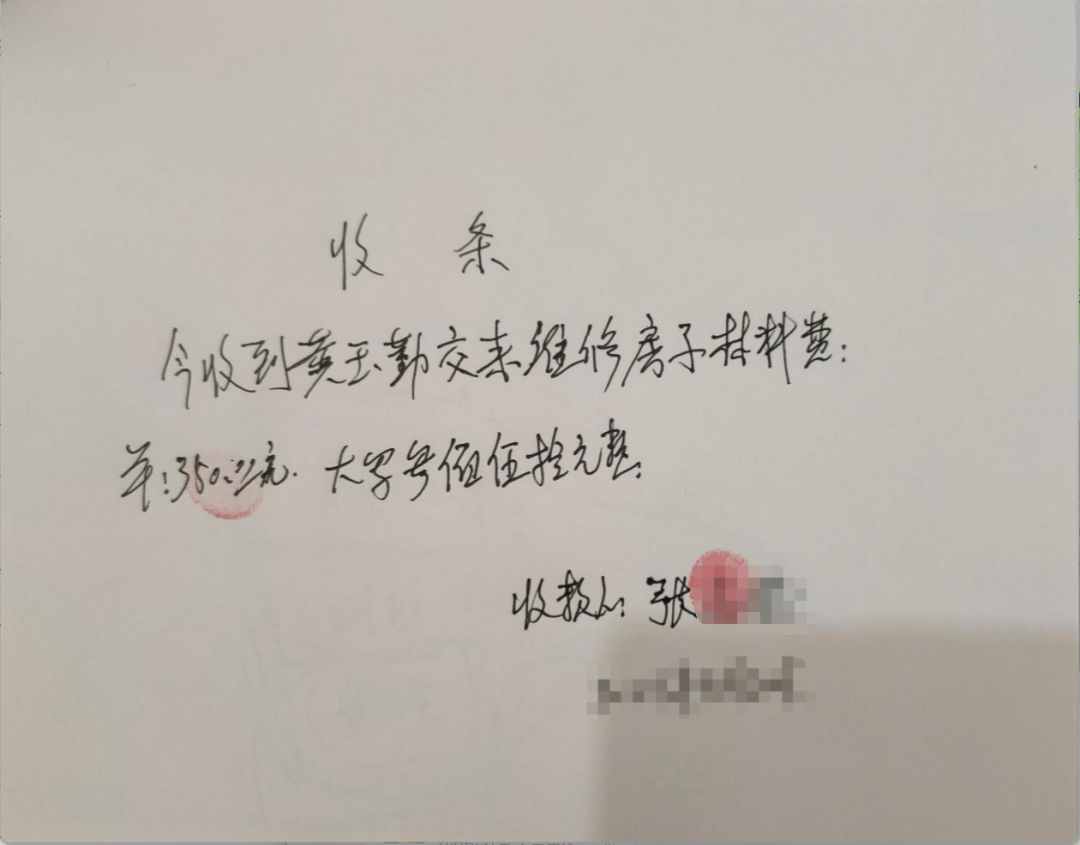 收条
今收到黄玉勤交来维修房子材料费:
羊:350.00元.大写叁佰伍拾元整.
收款人:张